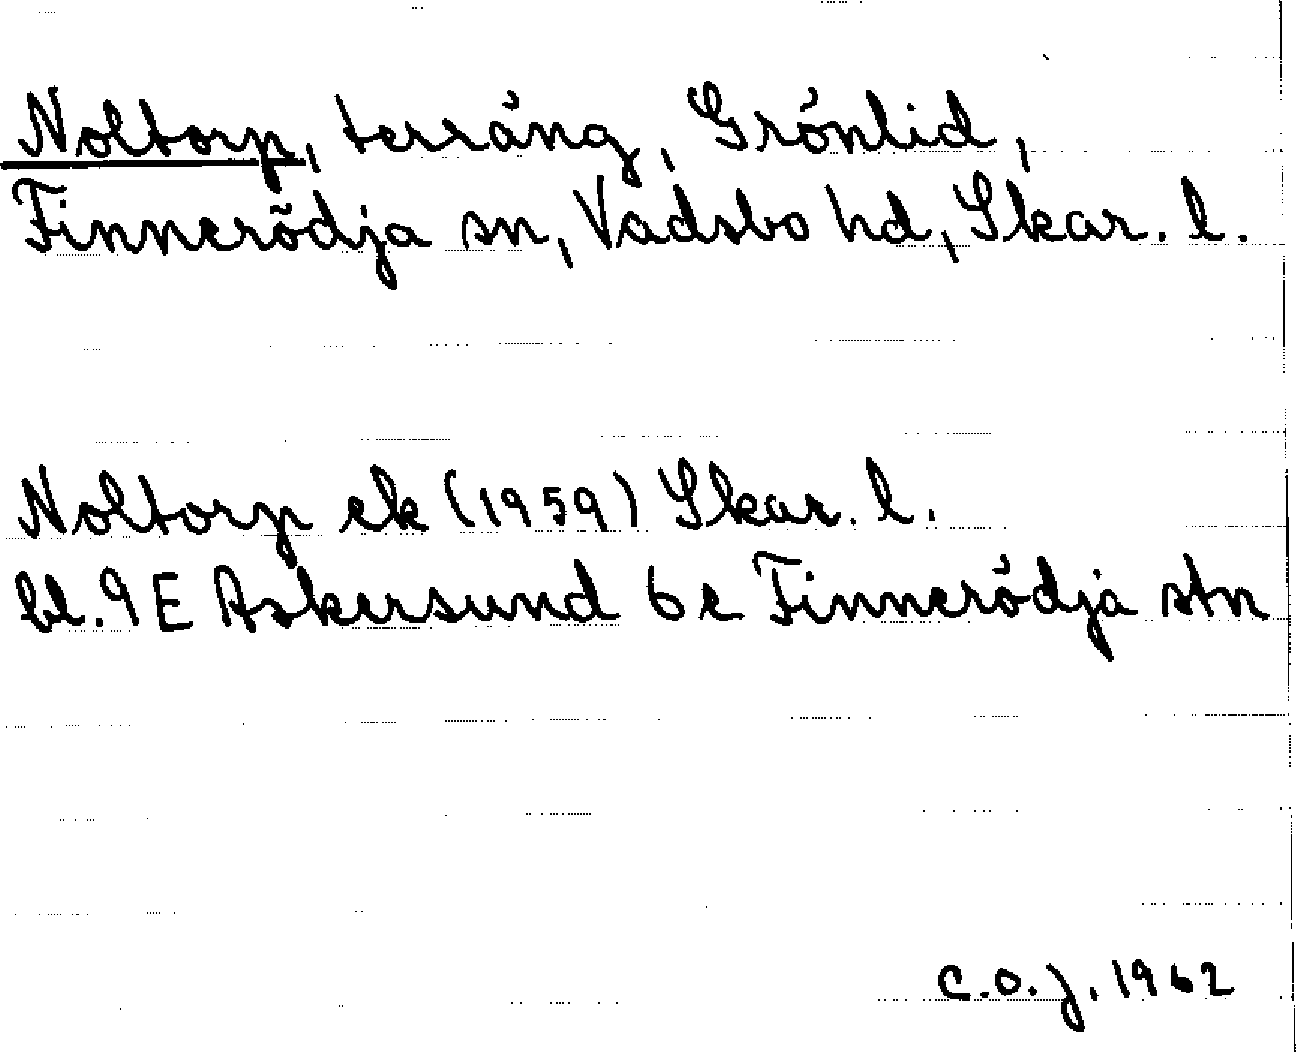 Noltorp, terräng, Grönlid,
Finnerödja sn, Vadsbo hd, Skar. l.
Noltorp ek (1959) Skar. l.
bl. 9 E Askersund 6 e Finnerödja stn
C.O.J. 1962